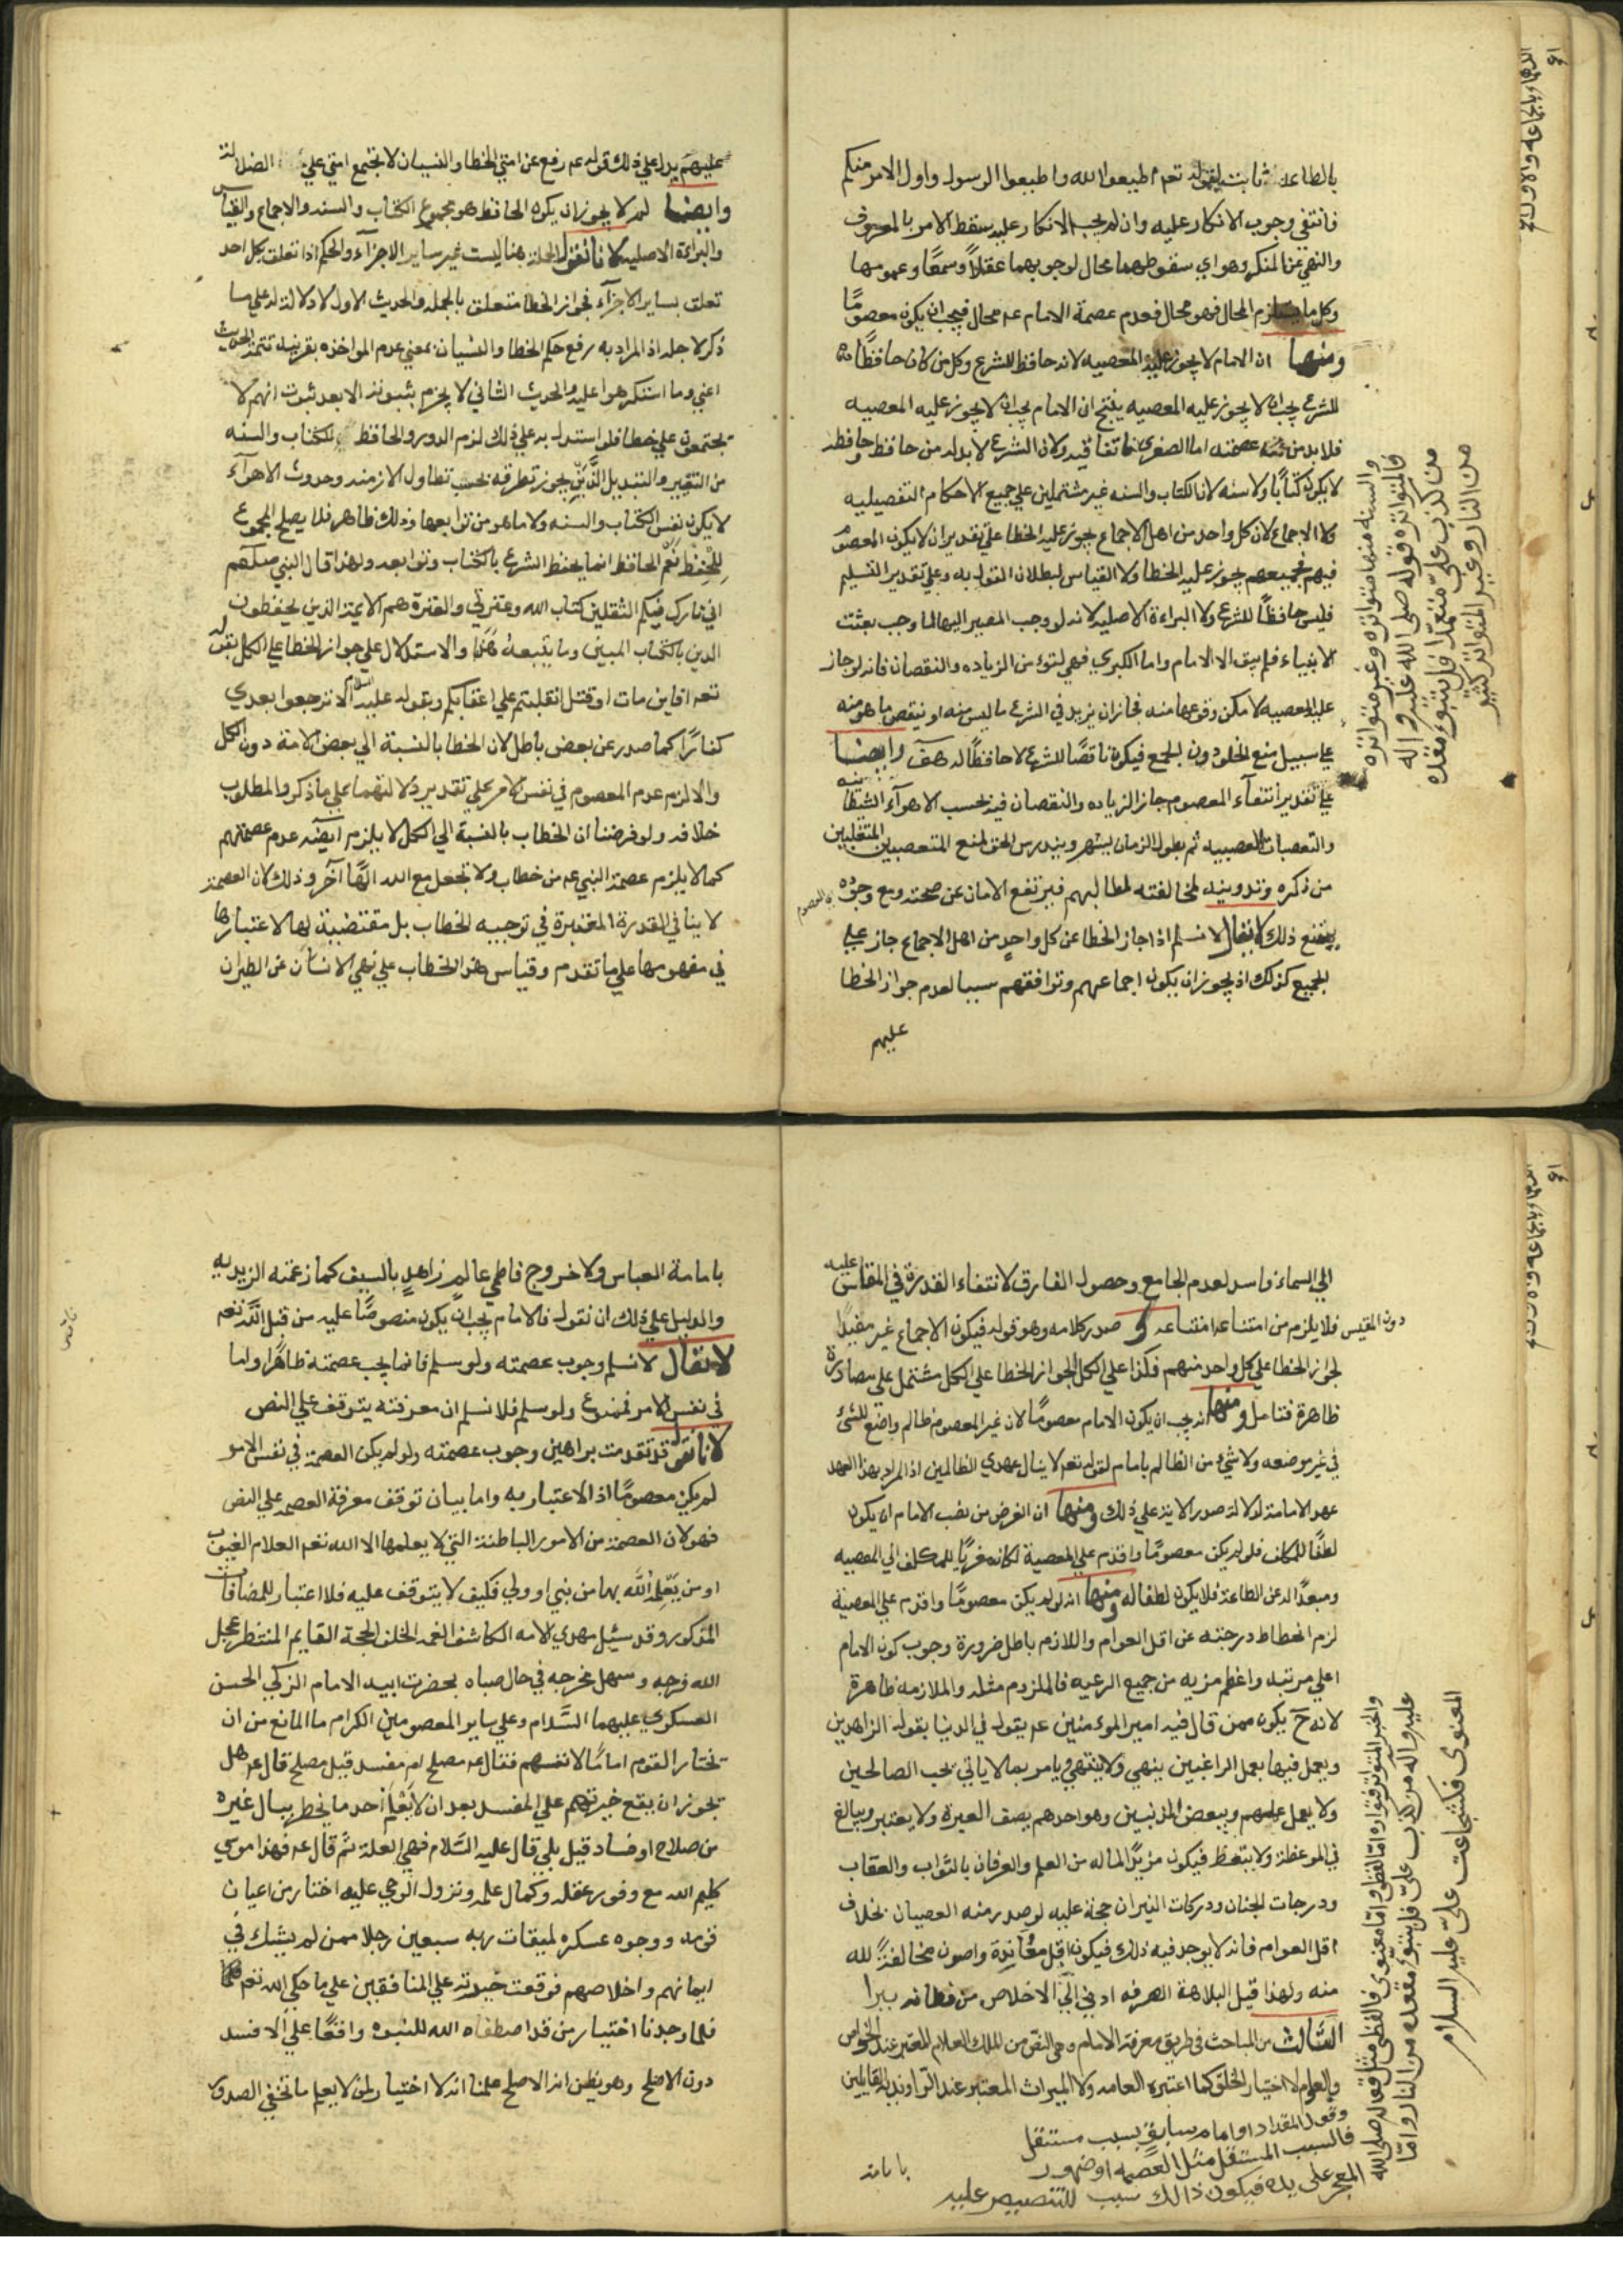 بالطاعة ثابت لقوله تعم اطيعوا الله واطيعوا الرسول واولي الامر منكم
فانتفى وجوب الانكار عليه وان لم يجب الانكار عليه سقط الامر بالمعروف
والنهي عن المنكر وهو اي سقوطهما محال لوجوبهما عقلاً وسمعًا وعمومها
وكل ما يستلزم المحال فهو محال فعدم عصمة الامام عم محال فيجب ان يكون معصومًا
ومنها ان الامام لا يجوز عليه المعصيه لانه حافظ للشرع وكل من كان حافظًا
للشرع يجب ان لا يجوز عليه المعصيه ينتج ان الامام يجب ان لا يجوز عليه المعصيه
فلا بد من عصمته اما الصغرى فاتفاقيه ولان الشرع لا بد له من حافظ وحافظه
لا يكون كتابًا ولا سنه لان الكتاب والسنه غير مشتملين علي جميع الاحكام التفصيليه
ولا الاجماع لان كل واحد من اهل الاجماع يجوز عليه الخطا علي تقدير ان لا يكون المعصوم
فيهم فجميعهم يجوز عليه الخطا ولا القياس لبطلان القول به وعلي تقدير التسليم
فليس حافظًا للشرع ولا البراءة الاصليه لانه لو وجب المصير اليها لما وجب بعثت
الانبياء فلم يبق الا الامام واما الكبرى فهي لتوء من الزياده والنقصان فانه لو جاز
عليه المعصيه لامكن وقوعها منه فجاز ان يزيد في الشرع ما ليس منه او ينقص ما هو منه
علي سبيل منع الخلو دون الجمع فيكون ناقصًا للشرع لا حافظًا له هف وايضا
علي تقدير انتفآء المعصوم جاز الزياده والنقصان فيه بحسب الاهوآء الشيطانيه
والتعصبات العصبيه ثم بطول الزمان يشتهر ويندرس الحق لمنع المتعصبين المتغلبين
من ذكره وتدوينه لمخالفته لمطالبهم فيرتفع الامان عن صحته ومع وجوده اي المعصوم
يمتنع ذلك لا يقال لا نسلم اذا جاز الخطا عن كل واحدٍ من اهل الاجماع جاز علي
الجميع كذلك اذ يجوز ان يكون اجماعهم وتوافقهم سببا لعدم جواز الخطا
عليهم
والسنه منها متواتره وغير متواتره
فالمتواتره قوله صلى الله عليه واله
من كذب عليّ متعمّدًا فليتبوء مقعده
من النار وغير المتواتر كثير
عليهم يدل علي ذلك قوله عم رفع عن امتي الخطا والنسيان لا تجتمع امتي علي الضلالة
وايضا لم لا يجوز ان يكون الحافظ هو مجموع الكتاب والسنه والاجماع والقياس
والبراءة الاصليه لانا نقول الجملة هنا ليست غير ساير الاجزآء والحكم اذا تعلق بكل احد
تعلق بساير الاجزآء فجواز الخطا متعلق بالجمله والحديث الاول لا دلالة له علي ما
ذكر لاجله اذ المراد به رفع حكم الخطا والنسيان بمعني عدم المواخذه بقرينة تتمة الحديث
اعني وما استكرهوا عليه والحديث الثاني لا يجزم بثبوته الا بعد ثبوت انهم لا
يجتمعون علي خطا فلو استدل به علي ذلك لزم الدور والحافظ للكتاب والسنه
من التغيير والتبديل الَّذَين يجوز تطرقه بحسب تطاول الازمنه وحدوث الاهوآء
لا يكون نفس الكتاب والسنه ولا ما هو من توابعها وذلك ظاهر فلا يصلح المجموع
للحِفظِ نَعَم الحافظ انما يحفظ الشرع بالكتاب وتوابعه ولهذا قال النبي صلعم
اني تارك فيكم الثقلين كتاب الله وعترتي والعترة هم الايمة الذين يحفظون
الدين بالكتاب المبين وما يتبعه هذا والاستدلال علي جواز الخطا علي الكل بقوله
تعه افاين مات او قتل انقلبتم علي اعقابكم وبقوله عليه السلام الا ترجعوا بعدي
كفارًا كما صدر عن بعض باطل لان الخطا بالنسبة الي بعض الامة دون الكل
والا لزم عدم المعصوم في نفس الامر علي تقدير دلالتهما علي ما ذكر والمطلوب
خلافه ولو فرضنا ان الخطاب بالنسبة الي الكل لا يلزم ايضه عدم عصمتهم
كما لا يلزم عصمة النبي عم من خطاب ولا تجعل مع الله الهًا آخر وذلك لان العصمة
لا ينافي القدرة المعتبرة في توجيه الخطاب بل مقتضيتة لها لاعتبارها
في مفهومها علي ما تقدم وقياس هذا الخطاب علي نهي الانسان عن الطيران
الي السماء فاسد لعدم الجامع وحصول الفارق لانتفاء القدرة في المقاس عليه
دون المقيس فلا يلزم من امتناعه امتناعه و صدر كلامه وهو قوله فيكون الاجماع غير مفيدًا
لجواز الخطا علي كل واحد منهم فكذا علي الكل لجواز الخطا علي الكل مشتمل علي مصادرة
ظاهرة فتامل ومنها انه يجب ان يكون الامام معصومًا لان غير المعصوم ظالم واضع للشئ
في غير موضعه ولا شئ من الظالم بامام لقوله تعم لا ينال عهدي الظالمين اذ المراد بهذا العهد
عهد الامامة لدلالة صدر الاية علي ذلك ومنها ان الغرض من نصب الامام ان يكون
لطفًا للمكلف فلو لم يكن معصومًا واقدم علي المعصية لكان مغريًا للمكلف الي المعصيه
ومبعدًا له عن الطاعة فلا يكون لطفا له ومنها انه لو لم يكن معصومًا واقدم علي المعصية
لزم انحطاط درجته عن اقل العوام واللازم باطل ضرورة وجوب كون الامام
اعلي مرتبه واعظم مزيه من جميع الرعيه فالملزوم مثله والملازمه ظاهرة
لانه ح يكون ممن قال فيه امير الموءمنين عم يقول في الدنيا بقول الزاهدين
ويعمل فيها بعمل الراغبين ينهي ولا ينتهي ويامر بما لا ياتي يحب الصالحين
ولا يعمل عملهم ويبغض المذنبين وهو احدهم يصف العبرة ولا يعتبر ويبالغ
في الموعظة ولا يتعظ فيكون مزيدًا لماله من العلم والعرفان بالثواب والعقاب
ودرجات الجنان ودركات النيران حجة عليه لو صدر منه العصيان بخلاف
اقل العوام فانه لا يوجد فيه ذلك فيكون اقل معُانِدة واصون مخالفةً لله
منه ولهذا قيل البلاهة الصرفه ادني الي الاخلاص من فطانه بترا
الثالث من المباحث في طريق معرفة الامام وهي النص من الملك العلام المعتبر عند الخواص
والعوام لا اختيار الخلق كما اعتبره العامه ولا الميراث المعتبر عند الراونديه القايلين
وقول المقداد او امام سابق بسبب مستقل
فالسبب المستقل مثل العصمه او ظهور
المعجز على يده فيكون ذالك سبب للتنصيص عليه
بامامة
والخبر المتواتر تواتره اما لفظى واما معنوى فالفظى مثل قوله صلى الله
عليه واله من كذب عليّ فليتبوء مقعده من النار واما
المعنوى فكشجاعت علىّ عليه السلام
بامامة العباس ولا خروج فاطمي عالم زاهدٍ بالسيف كما زعمته الزيديه
والدليل علي ذلك ان نقول الامام يجب ان يكون منصوصًا عليه من قبل الله تعم
لا يقال لا نسلم وجوب عصمته ولو سلم فانما يجب عصمته ظاهرًا واما
في نفس الامر فممنوع ولو سلم فلا نسلم ان معرفته يتوقف علي النص
لانا نقول قد تقدمت براهين وجوب عصمته ولو لم يكن العصمة في نفس الامر
لم يكن معصومًا اذ الاعتبار به واما بيان توقف معرفة العصمة علي النص
فهو لان العصمة من الامور الباطنة التي لا يعلمها الا الله تعم العلام الغيوب
او من يَعْلِمهُ الله بها من نبي او ولي فكيف لا يتوقف عليه فلا اعتبار للمضافات
المذكور وقد سئيل مهدي الامه الكاشف الغمه الخلف الحجة القايم المنتظر عجل
الله فرجه وسهل مخرجه في حال صباه بحضرت ابيه الامام الزكي الحسن
العسكري عليهما السَّلام وعلي ساير المعصومين الكرام ما المانع من ان
تختار القوم امامًا لانفسهم فقال عم مصلح ام مفسد قيل مصلح قال عم هل
تجوز ان يقع خيرتهم علي المفسد بعد ان لا يَعْلَم احد ما يخطر ببال غيره
من صلاح او فساد قيل بلي قال عليه السَّلام فهي العلة ثم قال عم فهذا موسي
كليم الله مع وفور عقله وكمال علمه ونزول الوحي عليه اختار من اعيان
قومه ووجوه عسكره لميقات ربه سبعين رجلا ممن لم يشك في
ايمانهم واخلاصهم فوقعت خيرته علي المنافقين علي ما حكي الله تعم
فلما وجدنا اختيار من قد اصطفاه الله للنبوه واقعًا علي الافسد
دون الاصلح وهو يظن انه الاصلح علمنا انه لا اختيار لمن لا يعلم ما تخفي الصدور